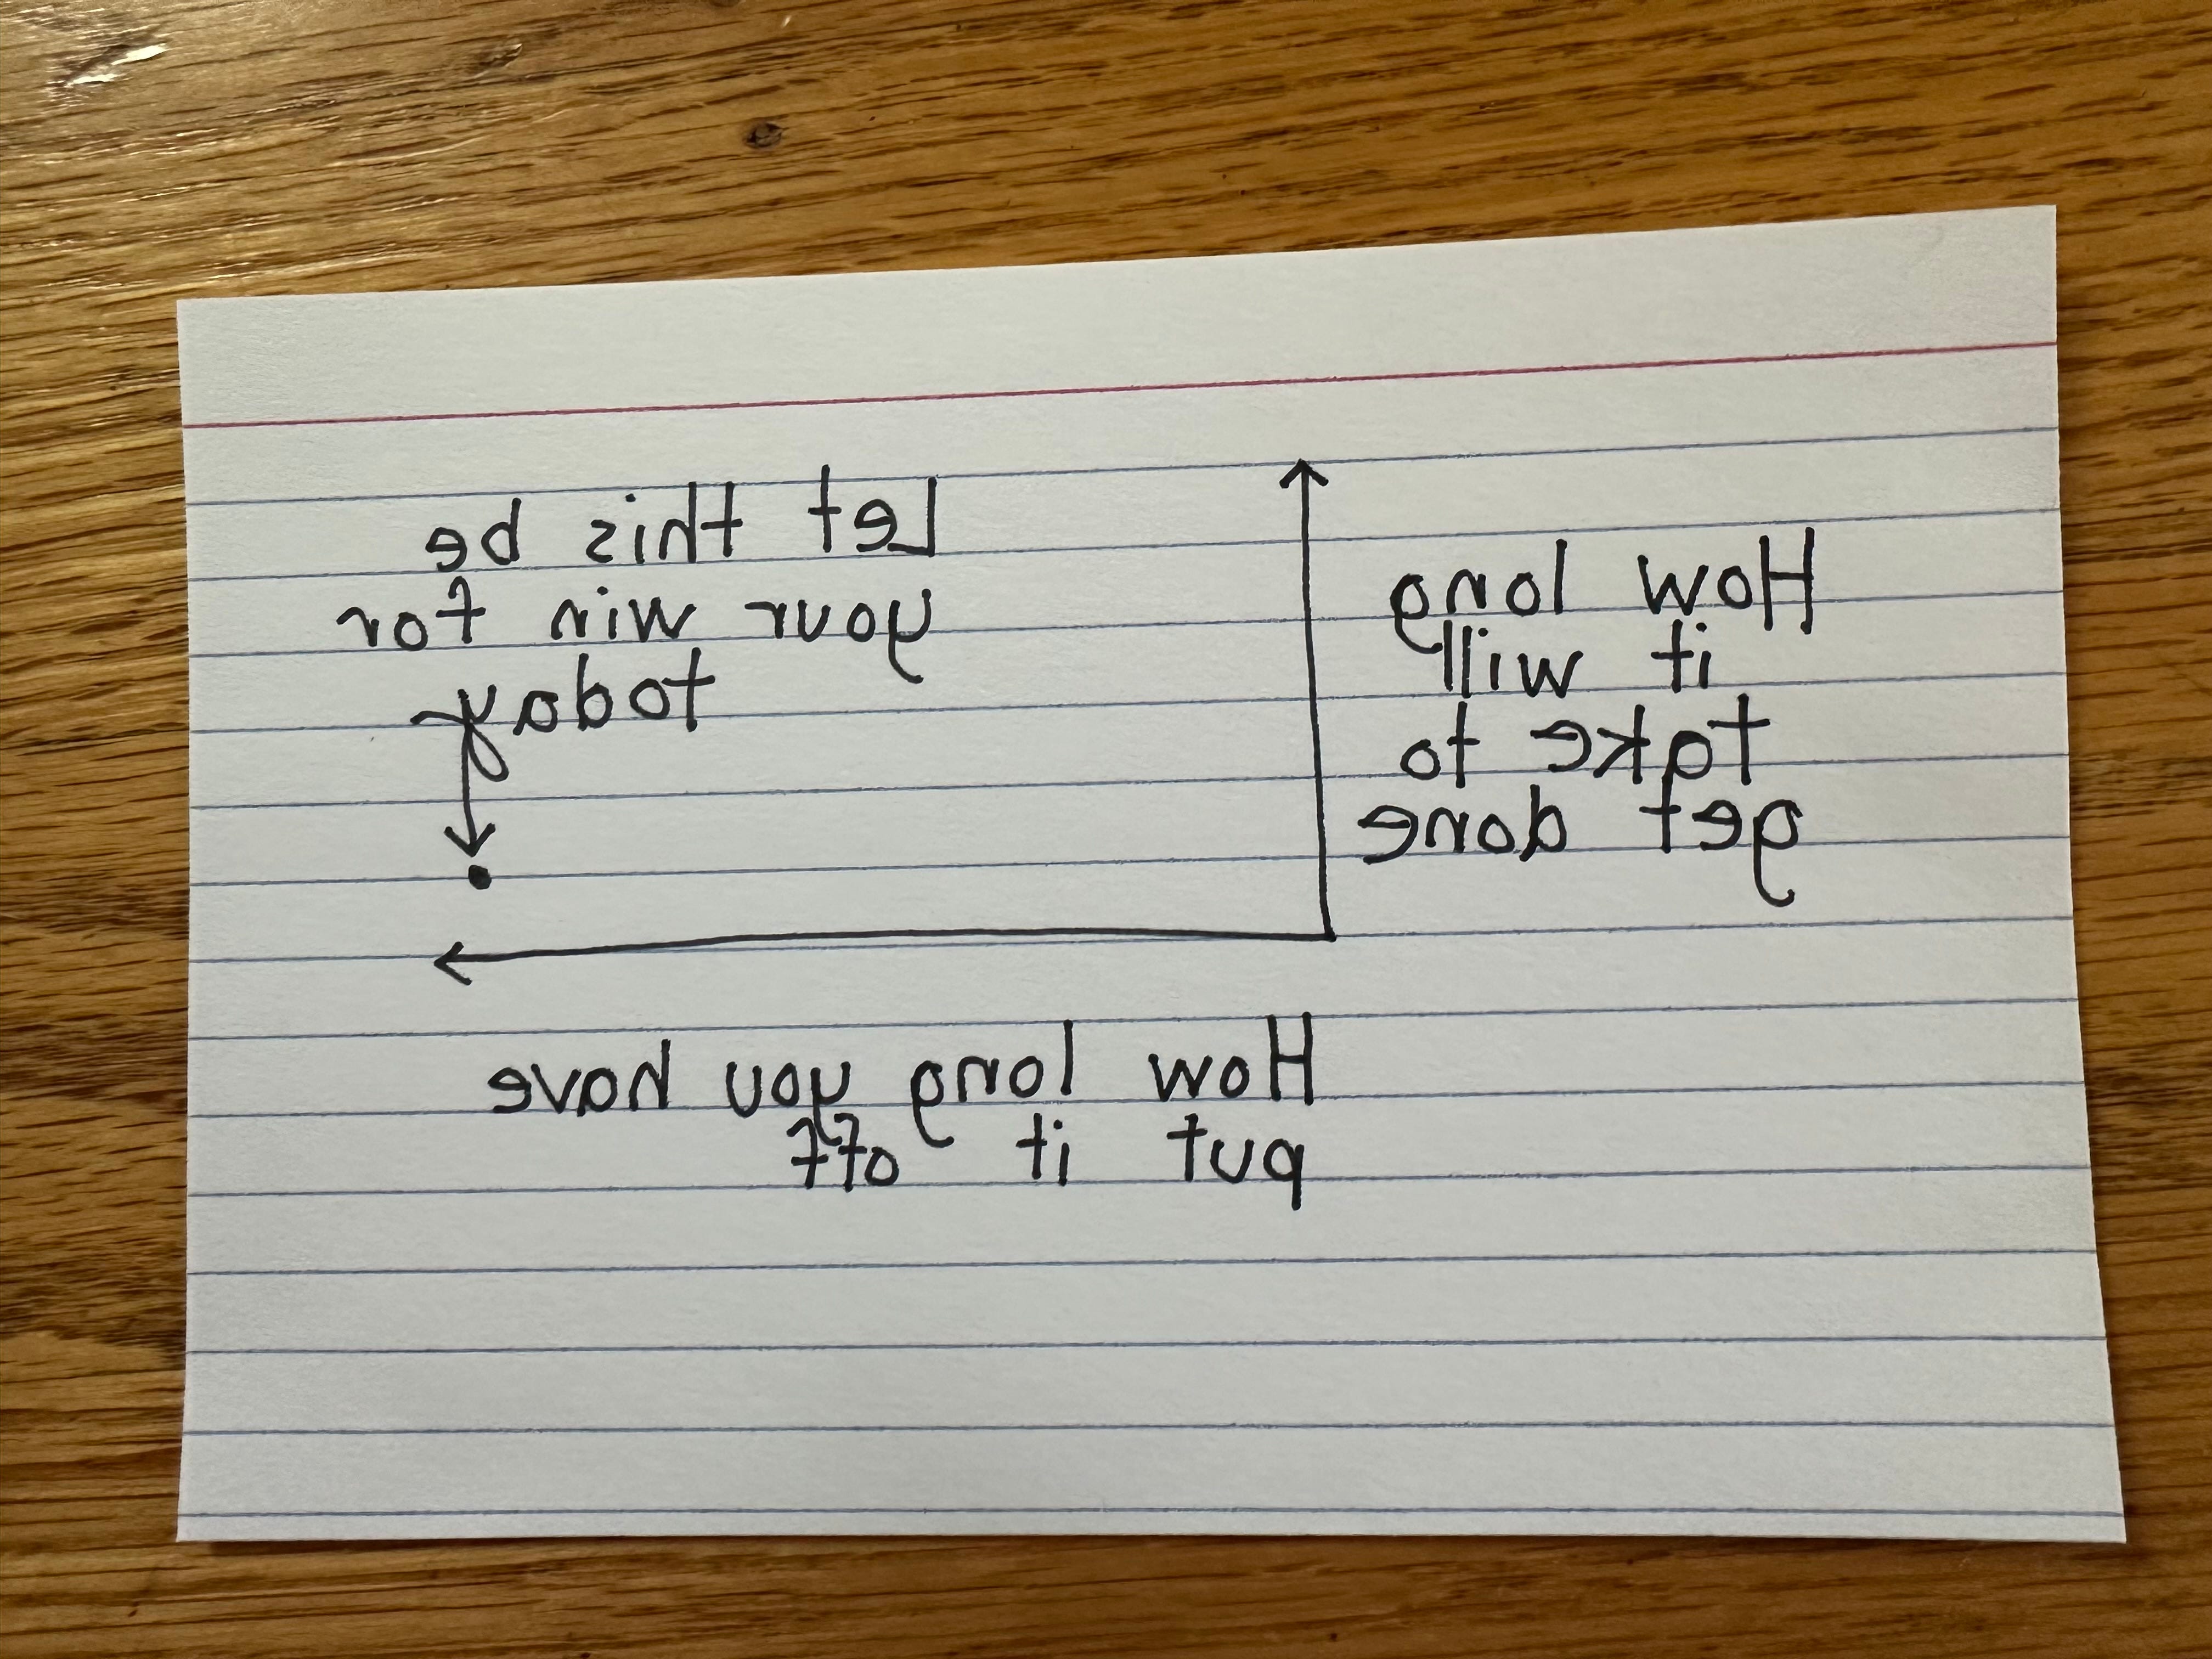 Let this be
your win for
today
How long
it will
take to
get done
How long you have
put it off